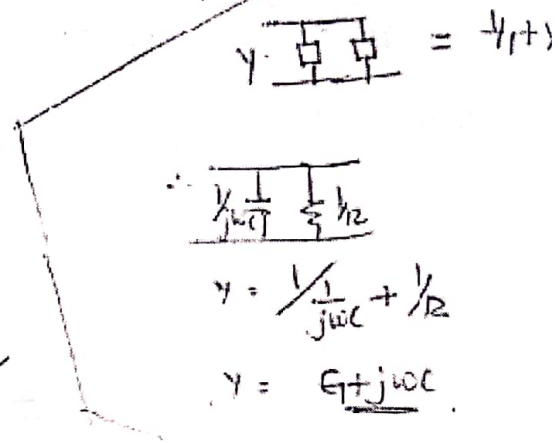 Y = Y₁+Y
∴ 1/jωC 1/R
Y = 1/(1/jωC) + 1/R
Y = G+jωC.